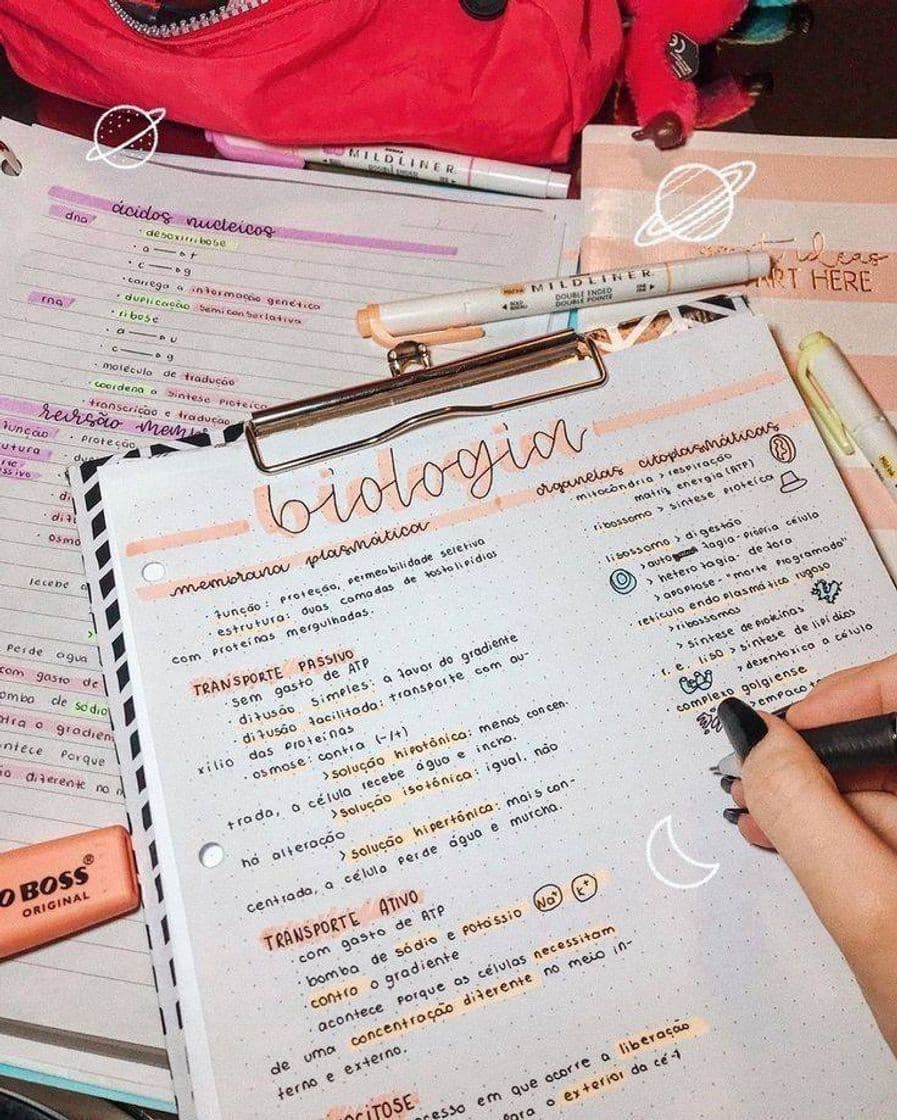 MILDLINER
DOUBLE ENDED
ácidos nucleicos
dna
· desoxirribose
· a → t
· c → g
· carrega a informação genética
· duplicação semiconservativa
rna
· ribose
· a → u
· c → g
· molécula de tradução
· coordena a síntese proteica
· transcrição e tradução
revisão mem
função
· proteção
START HERE
MILDLINER
DOUBLE ENDED
DOUBLE POINTE
biologia
membrana plasmática
· função: proteção, permeabilidade seletiva
· estrutura: duas camadas de fosfolipídios
com proteínas mergulhadas.
TRANSPORTE PASSIVO
· sem gasto de ATP
· difusão simples: a favor do gradiente
· difusão facilitada: transporte com au-
xílio das proteínas
· osmose: contra (-/+)
>solução hipotônica: menos concen-
trada, a célula recebe água e incha.
>solução isotônica: igual, não
há alteração
>solução hipertônica: mais con-
centrada, a célula perde água e murcha.
TRANSPORTE ATIVO
· com gasto de ATP
· bomba de sódio e potássio Na⁺ K⁺
contra o gradiente
· acontece porque as células necessitam
de uma concentração diferente no meio in-
terno e externo.
ocesso em que ocorre a liberação
para o exterior da cél
organelas citoplasmáticas
mitocôndria > respiração
matriz energia (ATP)
ribossomo > síntese proteica
lisossomo > digestão
>auto fagia - própria célula
> heterofagia - de fora
> apoptose - "morte programada"
retículo endoplasmático rugoso
>ribossomos
> síntese de proteínas
r. e. liso > síntese de lipídios
> desentoxica a célula
complexo golgiense
>empacota
recebe a
perde água
com gasto de
bomba de sódio
contra o gradien
ntece porque
diferente no
O BOSS®
ORIGINAL